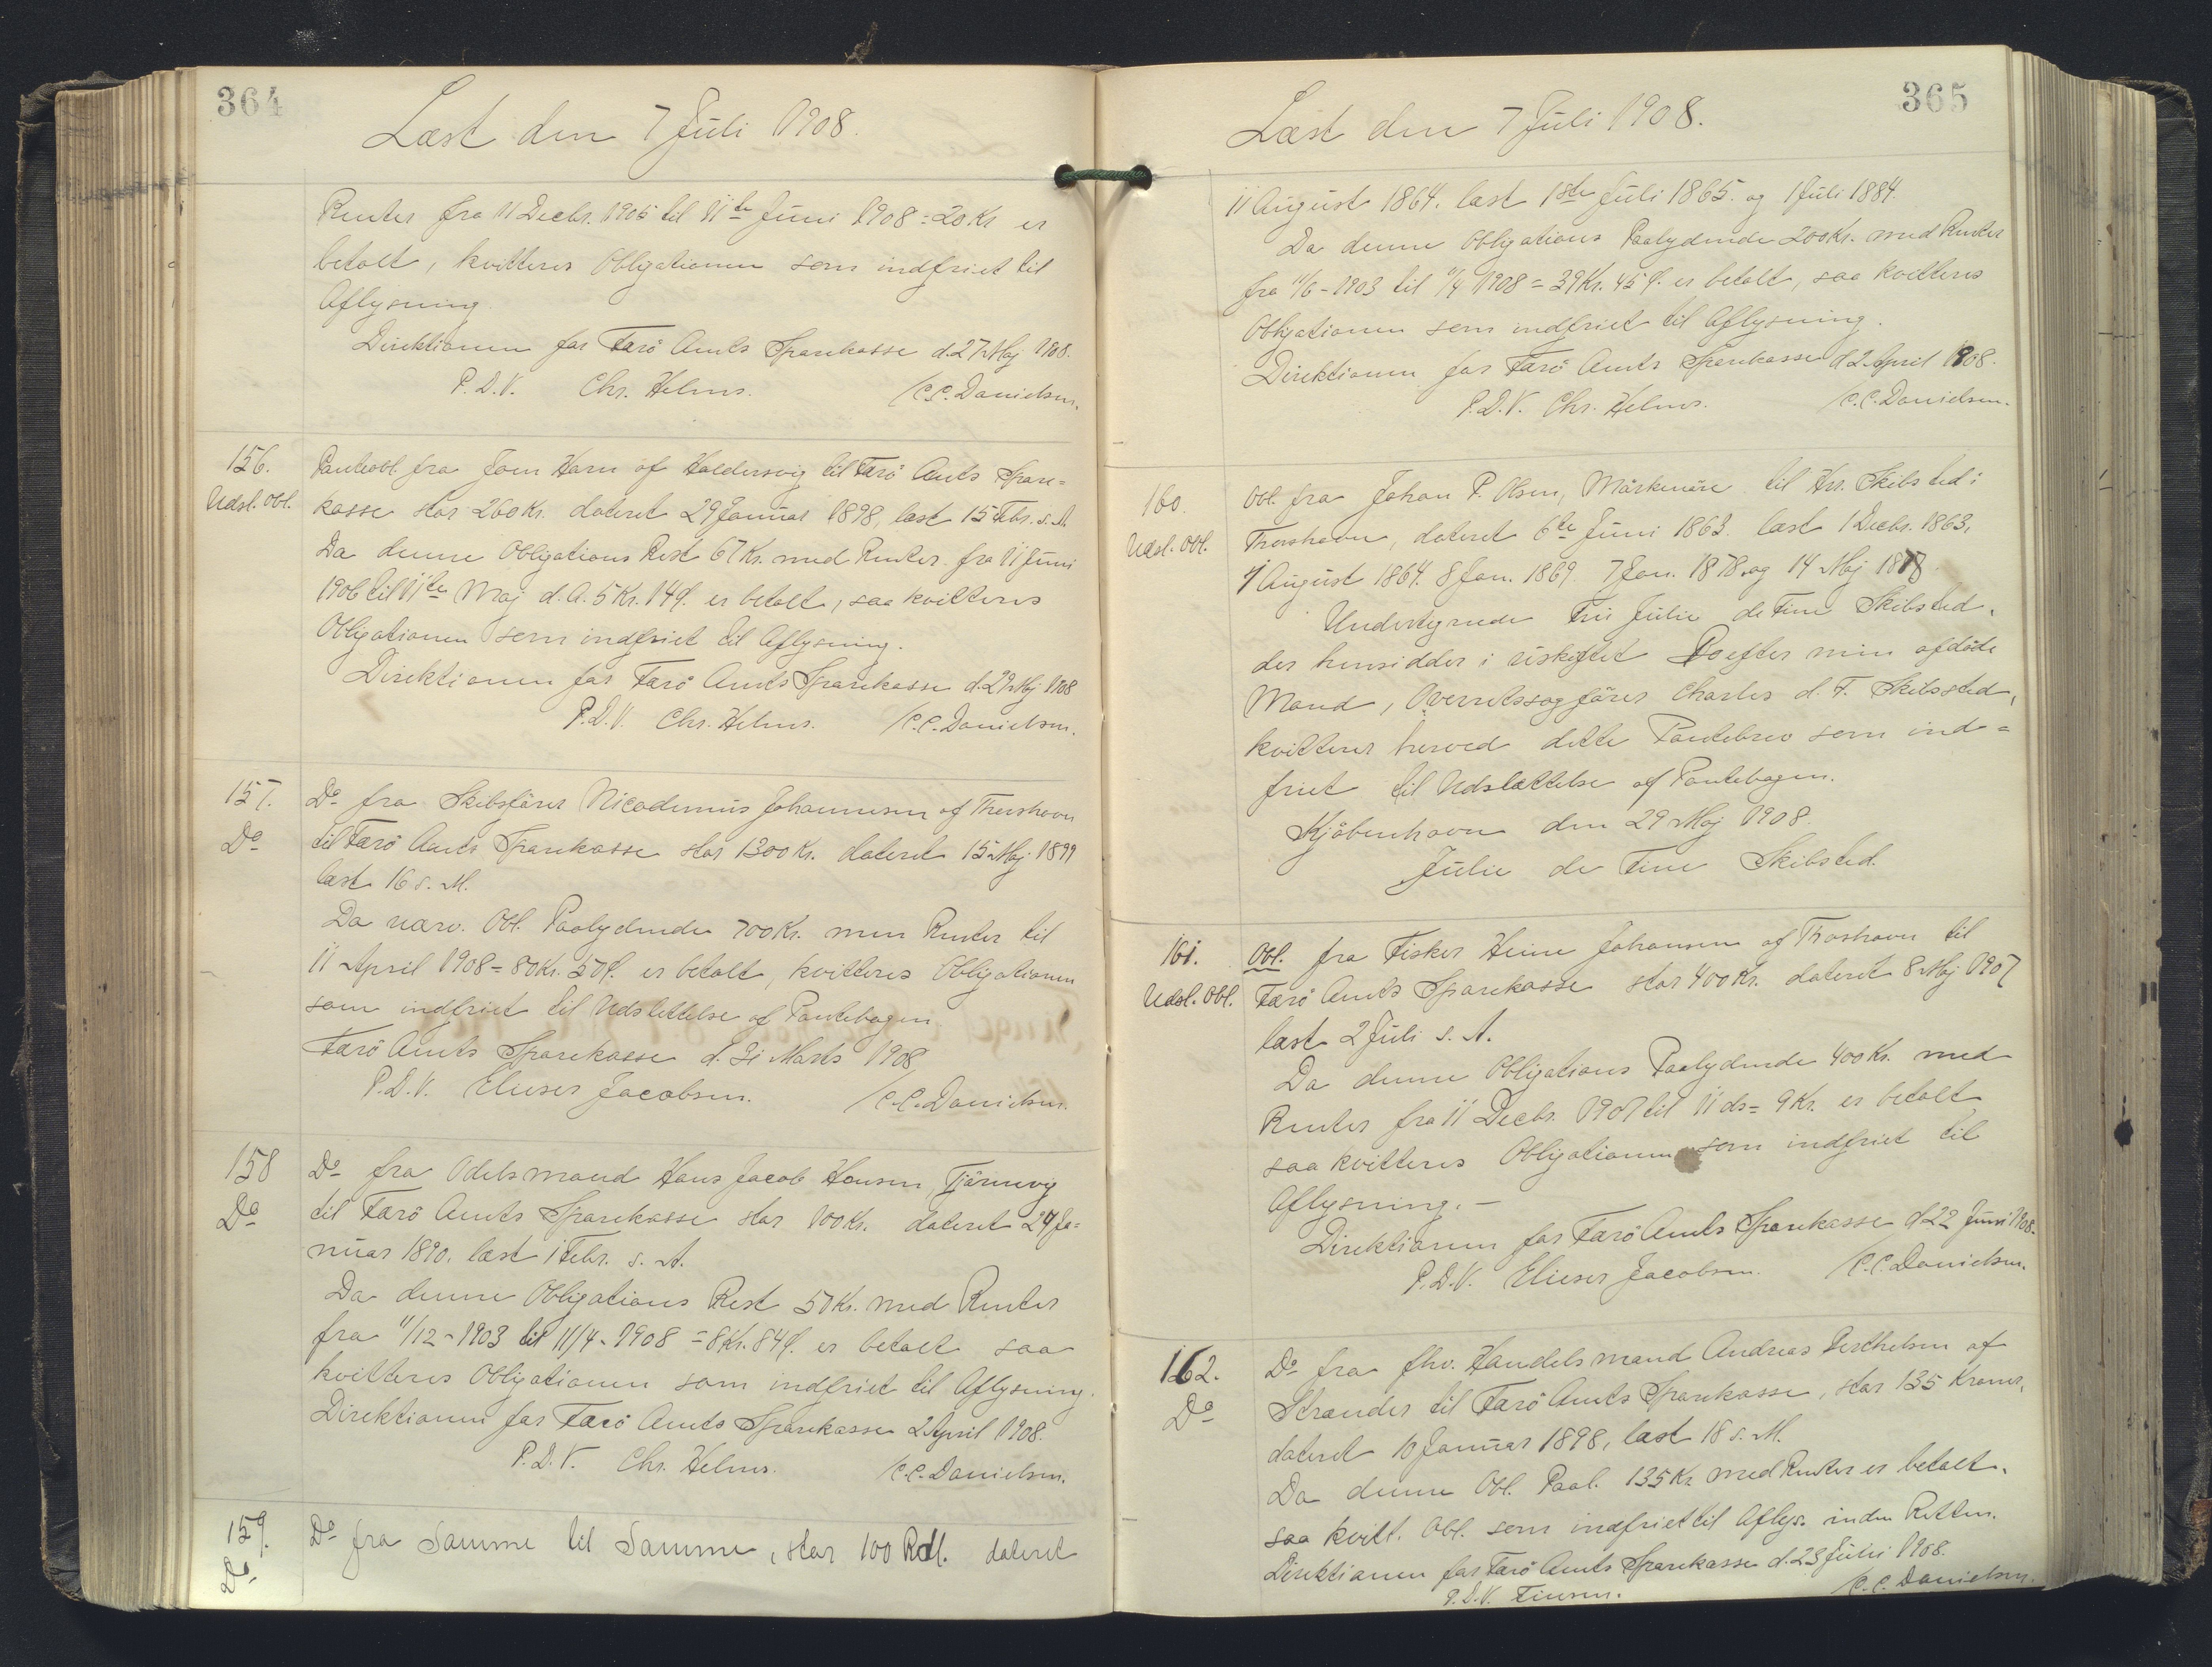 364
Læst den 7 Juli 1908.
Renter fra 11 Decbr. 1905 til 11te Juni 1908 = 20 Kr er
betalt, kvitteres Obligationen som indfriet til
Aflysning.
Direktionen for Færö Amts Sparekasse d. 27 Maj 1908.
P. D. V. Chr. Helms. /C.C. Danielsen.
156.
Udsl. Obl.
Panteobl. fra Joen Harn af Haldersvig til Færö Amts Spare=
kasse stor 260 Kr. dateret 29 Januar 1898, læst 15 Febr. s. A.
Da denne Obligations Rest 67 Kr. med Renter fra 11 Juni
1906 til 11te Maj d. A. 5 Kr. 14 Ø. er betalt, saa kvitteres
Obligationen som indfriet til Aflysning.
Direktionen for Færö Amts Sparekasse d. 29 Maj 1908
P. D. V. Chr. Helms. /C.C. Danielsen.
157.
Do
Do fra Skibsfører Nicodemus Johannesen af Thorshavn
til Færö Amts Sparekasse stor 1300 Kr. dateret 15 Maj 1899
læst 16 s. M.
Da nærv. Obl. Paalydende 700 Kr. men Renter til
11 April 1908 = 80 Kr. 50 Ø. er betalt, kvitteres Obligationen
som indfriet til Udslettelse af Pantebogen
Færö Amts Sparekasse d. 31 Marts 1908
P. D. V. Elieser Jacobsen. /C.C. Danielsen.
158
Do
Do fra Odelsmand Hans Jacob Hansen, Tjörnevig
til Færö Amts Sparekasse stor 100 Kr. dateret 24 Ja=
nuar 1890. læst 1 Febr. s. A.
Da denne Obligations Rest 50 Kr. med Renter
fra 11/12 - 1903 til 11/4 - 1908 = 8 Kr. 84 Ø. er betalt saa
kvitteres Obligationen som indfriet til Aflysning.
Direktionen for Færö Amts Sparekasse 2 April 1908.
P. D. V. Chr. Helms. /C.C. Danielsen.
159.
Do
Do fra Samme til Samme, stor 100 Rdl. dateret
365
Læst den 7 Juli 1908.
11 August 1864. læst 1ste Juli 1865. og 1 Juli 1884.
Da denne Obligations Paalydende 200 Kr. med Renter
fra 11/6 - 1903 til 11/4 1908 = 39 Kr. 45 Ø. er betalt, saa kvitteres
Obligationen som indfriet til Aflysning.
Direktionen for Færö Amts Sparekasse d 2 April 1908.
P. D. V. Chr. Helms. /C.C. Danielsen.
160.
Udsl. Obl.
Obl. fra Johan P. Olsen, Mörkenöre til Hr. Skibsted i
Thorshavn, dateret 6te Juni 1863. læst 1 Decbr. 1863,
1 August 1864. 8 Jan. 1869. 7 Jan. 1878 og 14 Maj 1878
Undertegnede Fru Julie de Fine Skibsted,
der hensidder i uskiftet Bo efter min afdöde
Mand, Overretssagförer Charles d. F. Skibsted,
kvitterer herved dette Pantebrev som ind=
friet til Udslættelse af Pantebogen.
Kjöbenhavn den 29 Maj 1908.
Julie de Fine Skibsted.
161.
Udsl. Obl.
Obl. fra Fisker Heine Johansen af Thorshavn til
Færö Amts Sparekasse stor 400 Kr. dateret 8 Maj 1907
læst 2 Juli s. A.
Da denne Obligations Paalydende 400 Kr. med
Renter fra 11 Decbr. 1907 til 11 ds = 9 Kr. er betalt
saa kvitteres Obligationen som indfriet til
Aflysning. -
Direktionen for Færö Amts Sparekasse d 22 Juni 1908.
P. D. V. Elieser Jacobsen. /C.C. Danielsen.
162.
Do
Do fra fhv. Handelsmand Andreas Berthelsen af
Strander til Færö Amts Sparekasse, stor 135 Kroner,
dateret 10 Januar 1898, læst 18 s. M.
Da denne Obl. Paal. 135 Kr. med Renter er betalt.
saa kvitt. Obl. som indfriet til Aflys. inden Retten.
Direktionen for Færö Amts Sparekasse d. 23 Juni 1908.
P. D. V. Finsen. /C.C. Danielsen.